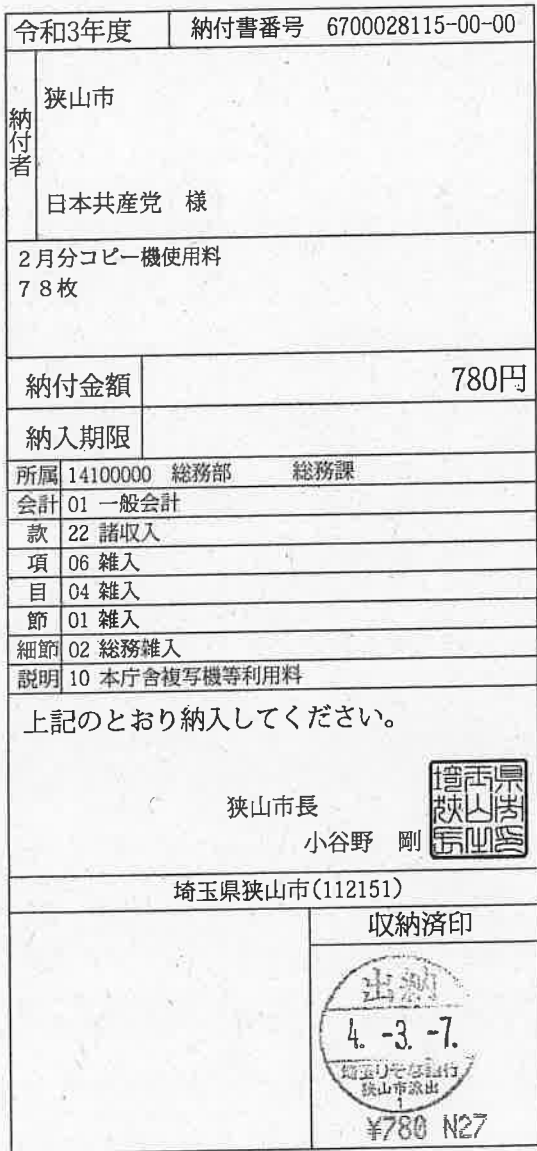 令和3年度 納付書番号 6700028115-00-00
納付者
狭山市
日本共産党 様
2月分コピー機使用料
78枚
納付金額 780円
納入期限
所属 14100000 総務部 総務課
会計 01 一般会計
款 22 諸収入
項 06 雑入
目 04 雑入
節 01 雑入
細節 02 総務雑入
説明 10 本庁舎複写機等利用料
上記のとおり納入してください。
狭山市長
小谷野 剛
埼玉県狭山市(112151)
収納済印
出納
4. -3. -7.
埼玉りそな銀行
狭山市派出
1
¥780 N27